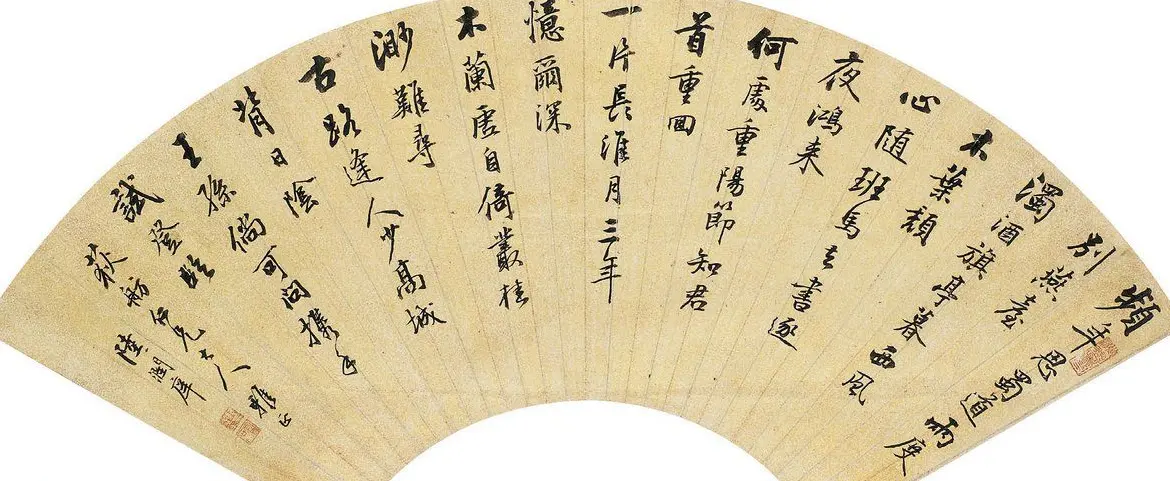 頻年思蜀道兩度
別燕臺
濁酒旗亭暮西風
木葉頹
心隨班馬去書逐
夜鴻来
何處重陽節知君
首重回
一片長淮月三年
憶爾深
木蘭虛自倚叢桂
渺難尋
古路逢人少高城
背日陰
王孫倘可問攜手
試登臨
荻舫仁兄大人雅正
陸潤庠